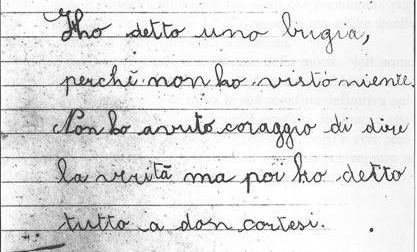 Ho detto uno bugia,
perché non ho visto niente.
Non ho avuto coraggio di dire
la verità ma poi ho detto
tutto a don cortesi.